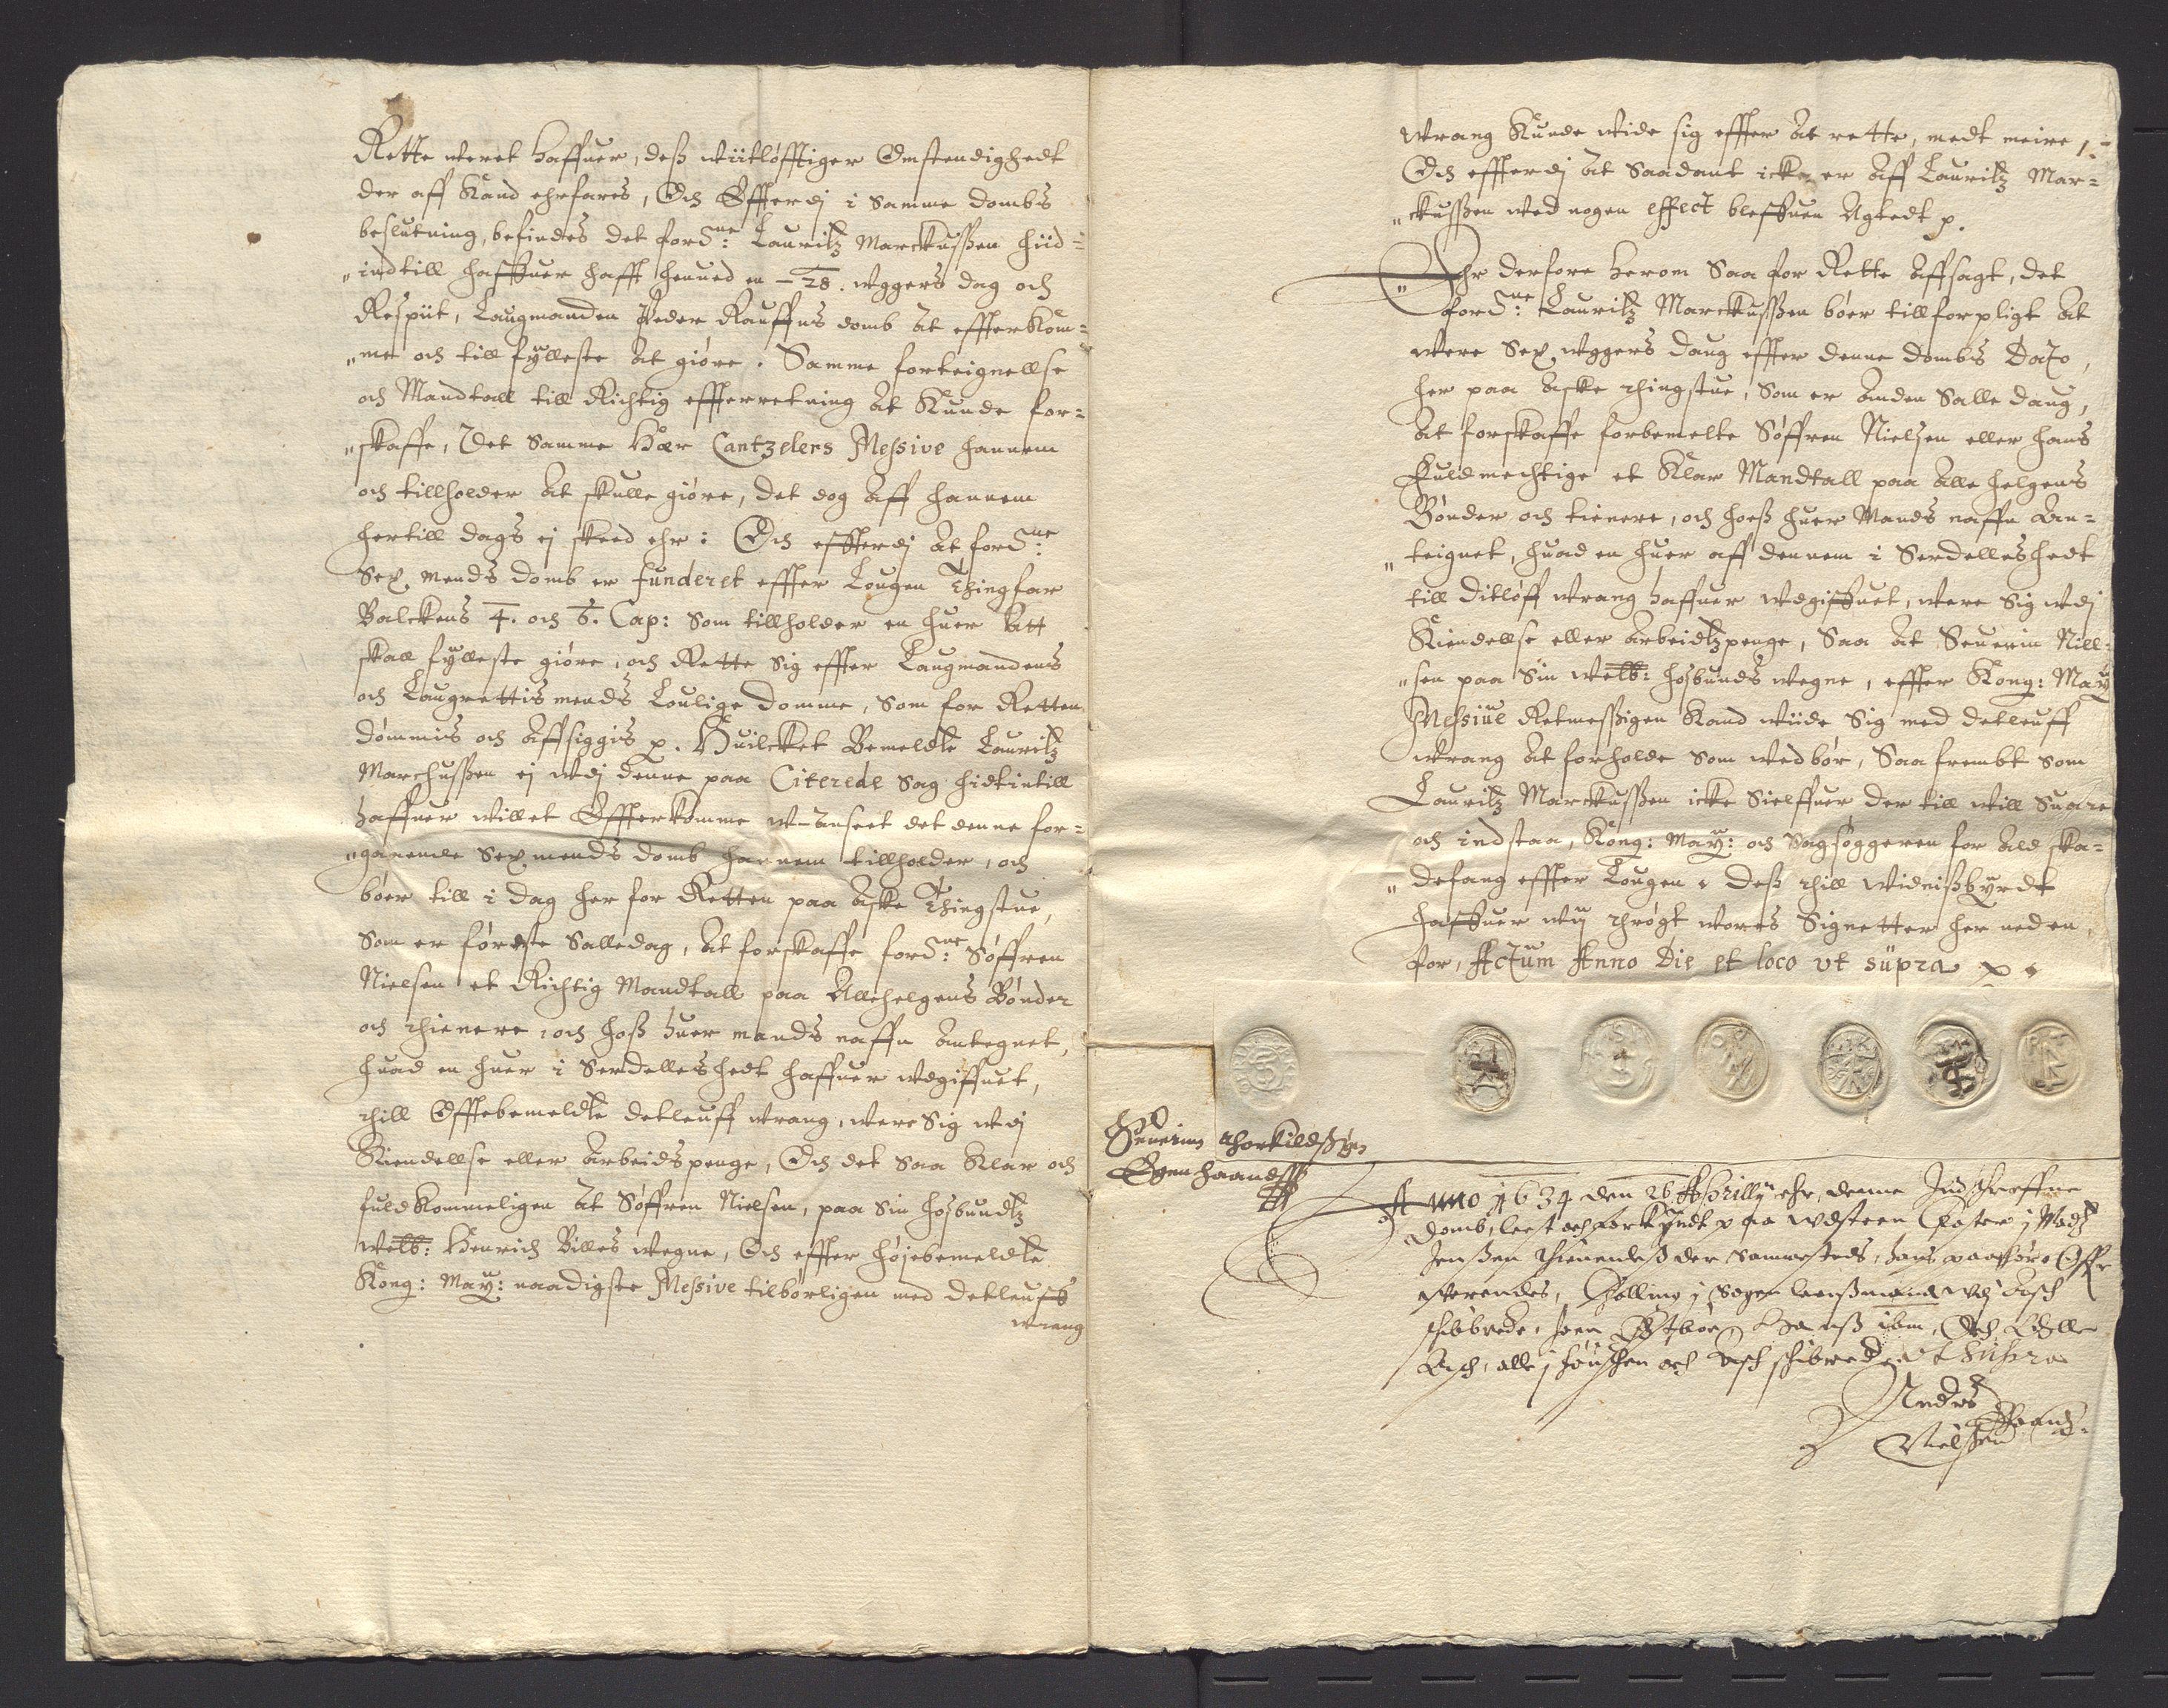 Rette weret haffuer, deß wiitløfftiger Omstendighedt
der aff Kand erfares, Och Effterdj i Samme dombs
beslutning, befindes det ford:ne Lauritz Marckußen hiid=
„indtill haffuer hafft henued en – 28. wggers dag och
Respiit, Laugmanden Peder Rauffns domb at effterkom=
„me och till fylleste at giøre. Samme forteignellse
och Mandtall till Richtig effterretning at Kunde for=
„skaffe, Det Samme Hær Cantzelers Messive hannem
och tillholder at skulle giøre, det dog aff hannem
hertill dags ej skeed ehr: Och effterdj at ford:ne
Sex mends domb er funderet effter Lougen Thingfar
Balckens 4. och 6. Cap: Som tillholder en huer att
skall fylleste giøre, och Rette Sig effter Laugmandens
och Laugrettis mends Loulige Domme, Som for Retten
dømmis och affsiggis p. Huilcket Bemeldte Lauritz
Marchußen ej wdj denne paa Citerede Sag hidtintill
haffuer willet Effterkomme w-anseet det denne for=
„ganende Sex mends domb hannem tillholder, och
bøer till i dag her for Retten paa Aske Thingstue,
Som er førdste Salledag, at forskaffe ford:ne Søffren
Nielsen et Richtig Mandtall paa Allehelgens Bønder
och thienere, och hoß huer mands naffn antegnet,
huad en huer i Serdelleshedt haffuer wdgiffuet,
thill Offtebemeldte Detleuff wrang, were Sig wdj
Kiendellse eller Arbeidspenge, Och det Saa Klar och
fuldkommeligen at Søffren Nielsen, paa Sin hosbundtz
Welb: Henrich Billes wegne, Och effter høiebemeldte
Kong: May: naadigste Messive tilbørligen med Detleuff
wrang
wrang Kunde wide sig effter at rette, medt meire
Och effterdj at Saadant icke er aff Lauritz Mar=
„ckußen wed nogen effect bleffuen agtedt p.
„Ehr derfore herom Saa for Rette affsagt, det
ford:ne Lauritz Marckußen bøer tillforpligt at
were Sex wggers daug effter denne dombs Dato,
her paa Aske thingstue, Som er anden Salle daug,
at forskaffe forbemelte Søffren Nielsen eller hans
Fuldmechtige et Klar Mandtall paa alle helgens
Bønder och tienere, och hoeß huer Mands naffn An=
„teignet, huad en huer aff dennem i Serdelleshedt
till Ditløff wrang haffuer wdgiffuet, were Sig wdj
Kiendellse eller Arbeidtzpenge, Saa at Seuerin Nill=
„sen paa Sin Welb: hosbunds wegne, effter Kong: May
Messiue Retmeßigen Kand wiide Sig med Detleuff
wrang at forholde Som wed bør, Saa frembt Som
Lauritz Marckußen icke Sielffuer der till will Suare
och indstaa, Kong: May: och Sagsøggeren for ald ska=
„defang effter Lougen. Deß thill widnißbyrdt
haffuer wij thrøgt wores Signetter her neden
for, Actum Anno Die et loco ut supra p.
Seuerinn Thorkildßen
Egen haand
Anno 1634 den 26 Aprillij ehr, denne Indschreffne
domb, leest och forkyndt paa
Jenßen thienendeß der Sammesteds, hans
werendes,
ibm, Och
alle j och ut Supra
Anders
Nielßen